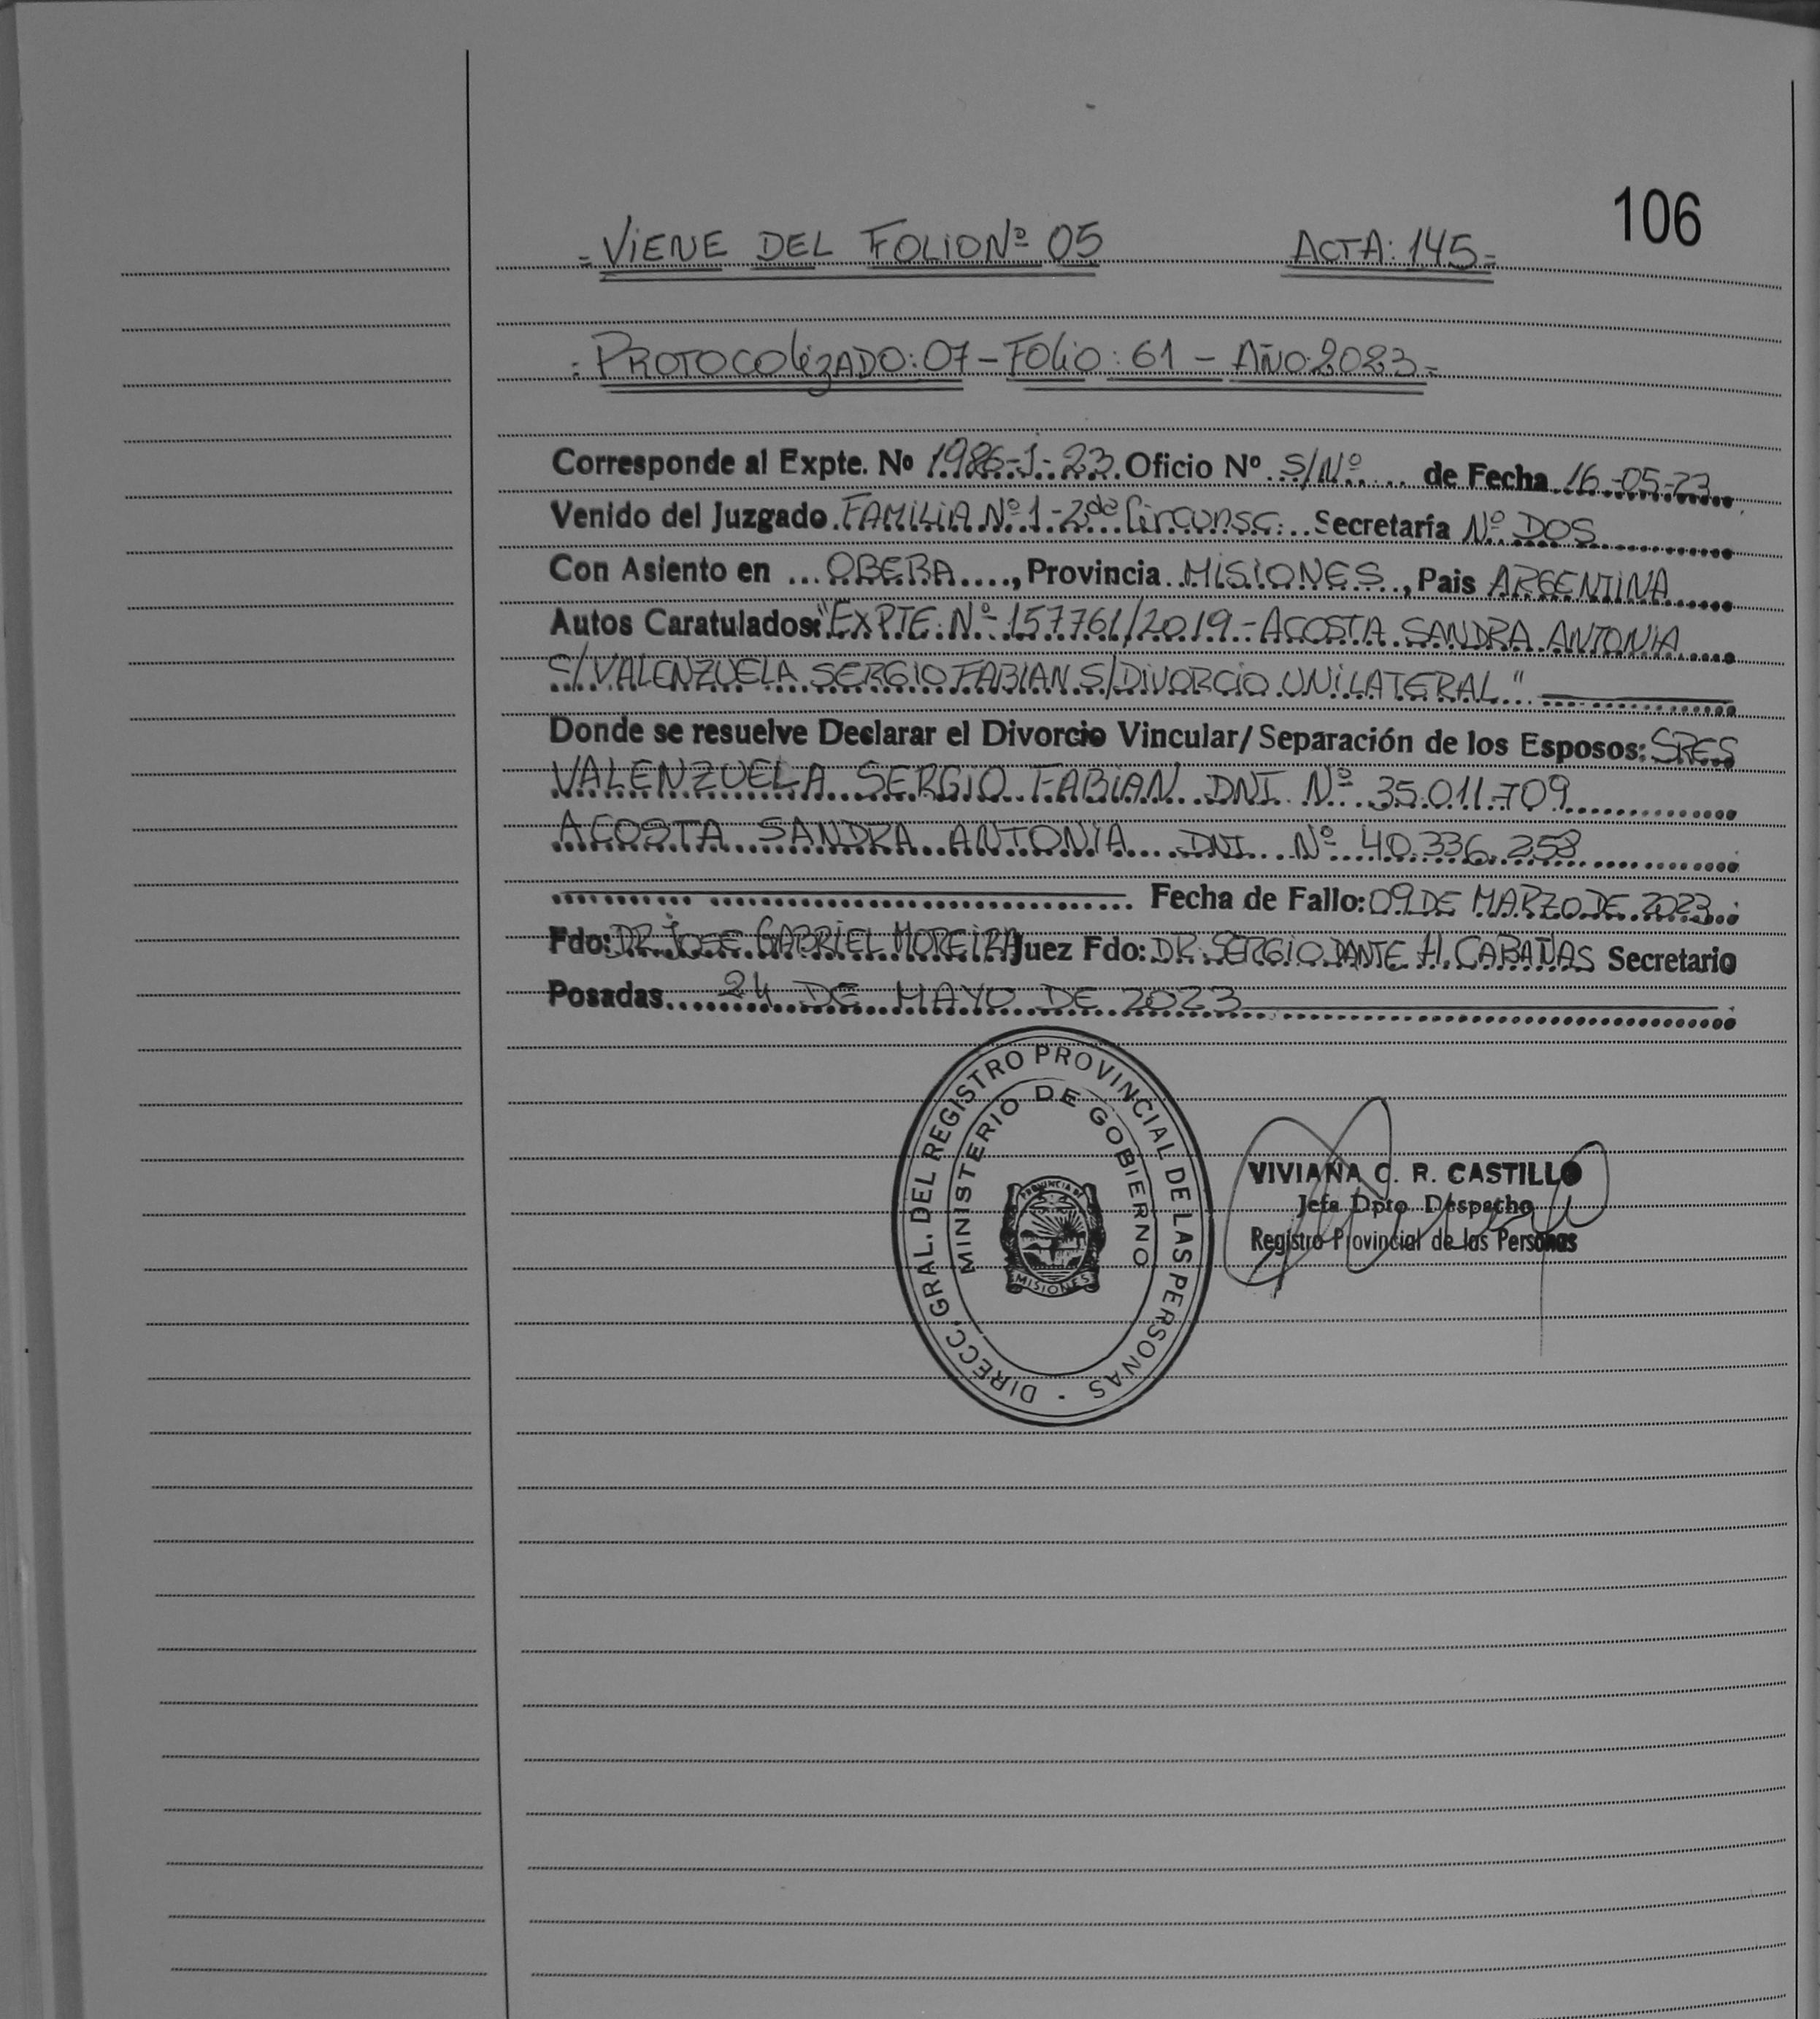 106
= VIENE DEL FOLIO Nº 05 ACTA: 145 =
= PROTOCOLIZADO: 07 - FOLIO: 61 - AÑO 2023 =
Corresponde al Expte. Nº 1986-1-23. Oficio Nº S/Nº de Fecha 16-05-23
Venido del Juzgado FAMILIA Nº 1 - 2da Circunsc. Secretaría Nº DOS
Con Asiento en OBERA, Provincia MISIONES, Pais ARGENTINA
Autos Caratulados: "EXPTE. Nº 157761/2019 - ACOSTA SANDRA ANTONIA
S/ VALENZUELA SERGIO FABIAN S/ DIVORCIO UNILATERAL"
Donde se resuelve Declarar el Divorcio Vincular/Separación de los Esposos: SRES
VALENZUELA SERGIO FABIAN DNI Nº 35.011.709
ACOSTA SANDRA ANTONIA DNI Nº 40.336.258
Fecha de Fallo: 09 DE MARZO DE 2023
Fdo: DR. JOSE GABRIEL MOREIRA Juez Fdo: DR. SERGIO DANTE H. CABAÑAS Secretario
Posadas 24 DE MAYO DE 2023
DIRECC. GRAL. DEL REGISTRO PROVINCIAL DE LAS PERSONAS
MINISTERIO DE GOBIERNO
PROVINCIA DE
MISIONES
VIVIANA C. R. CASTILLO
Jefa Dpto Despacho
Registro Provincial de las Personas